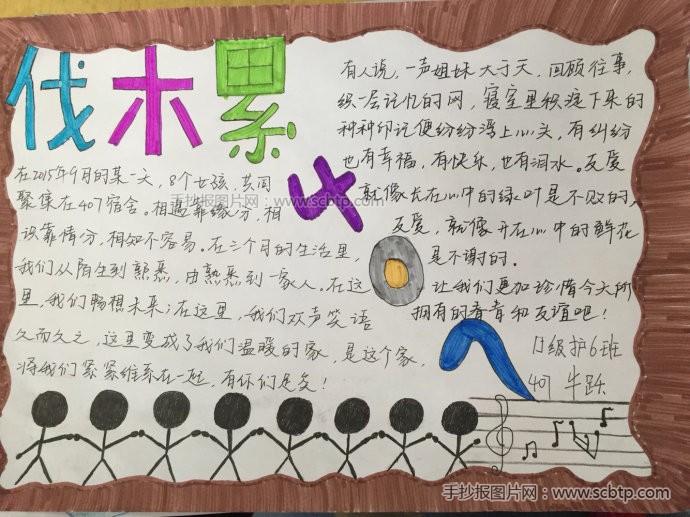 伐木累
在2015年9月的某一天，8个女孩，共同
聚集在407宿舍。相遇靠缘分，相
识靠情分，相知不容易。在三个月的生活里，
我们从陌生到熟悉，由熟悉到一家人。在这
里，我们畅想未来；在这里，我们欢声笑语
久而久之，这里变成了我们温暖的家，是这个家，
将我们紧紧维系在一起，有你们足矣！
407
有人说，一声姐妹大于天，回顾往事，
织一层记忆的网，寝室里积淀下来的
种种印记便纷纷湾上心头，有纠纷
也有幸福，有快乐，也有泪水。友爱
就像长在心中的绿叶是不败的，
友爱，就像开在心中的鲜花
是不谢的。
让我们更加珍惜今天所
拥有的青春和友谊吧！
级护6班
407 牛跃
手抄报图片网：www.scbtp.com
手抄报图片网：www.scbtp.com